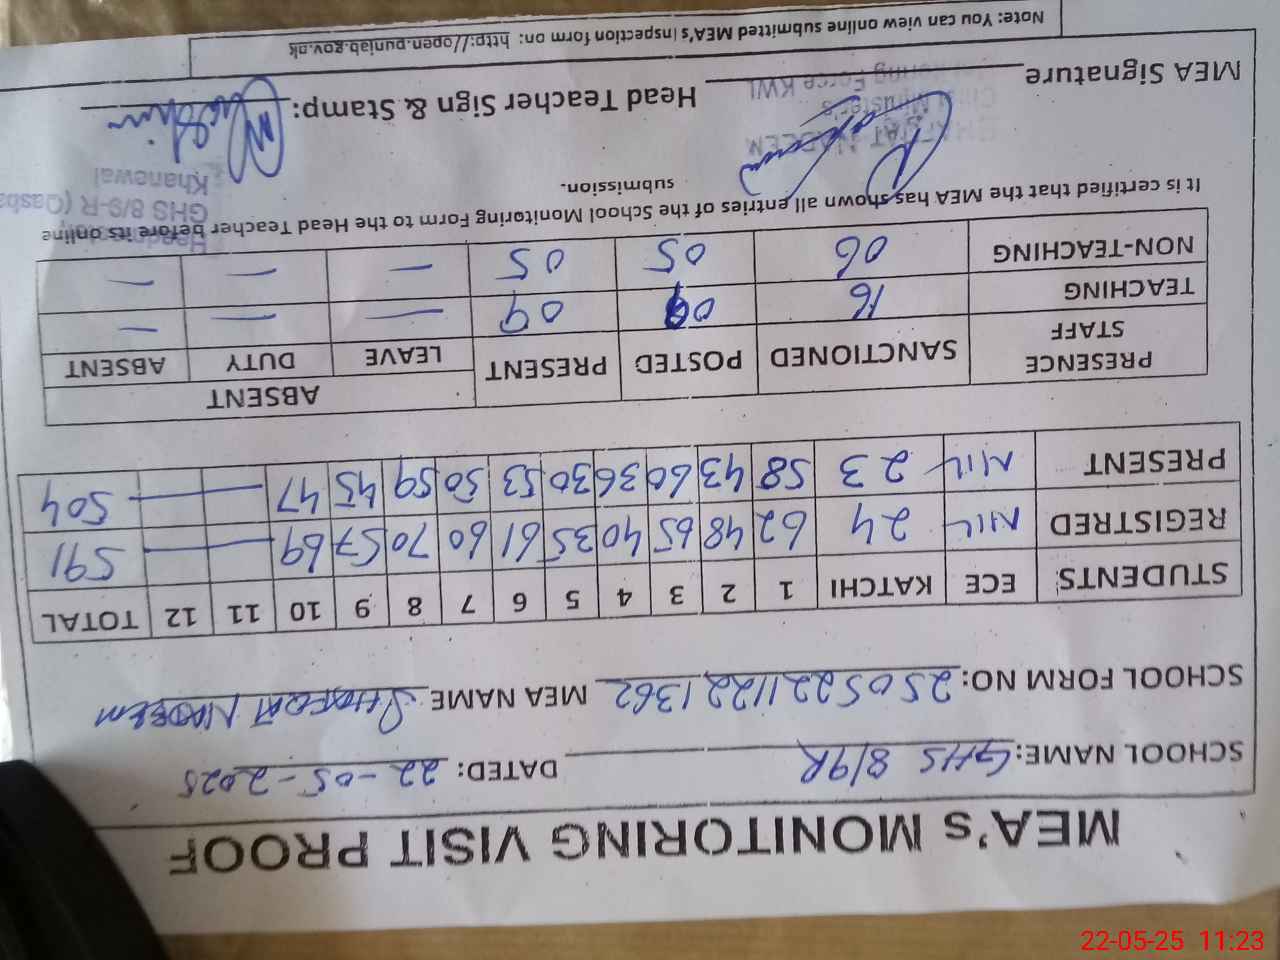 MEA's MONITORING VISIT PROOF
SCHOOL NAME: GHS 8/9R DATED: 22-05-2025
SCHOOL FORM NO: 25052211221362 MEA NAME SHAFQAT NADEEM
STUDENTS ECE KATCHI 1 2 3 4 5 6 7 8 9 10 11 12 TOTAL
REGISTRED NIL 24 62 48 65 40 35 61 60 70 57 69 — — 591
PRESENT NIL 23 58 43 60 36 30 53 50 59 45 47 — — 504
PRESENCE STAFF SANCTIONED POSTED PRESENT ABSENT
LEAVE DUTY ABSENT
TEACHING 16 09 09 — — —
NON-TEACHING 06 05 05 — — —
It is certified that the MEA has shown all entries of the School Monitoring Form to the Head Teacher before its online
submission.
GHS 8/9-R (Qasba
Khanewal
NADEEM
MEA Signature Head Teacher Sign & Stamp:
Force KWL
Note: You can view online submitted MEA's Inspection form on: http://open.punjab.gov.pk
22-05-25 11:23